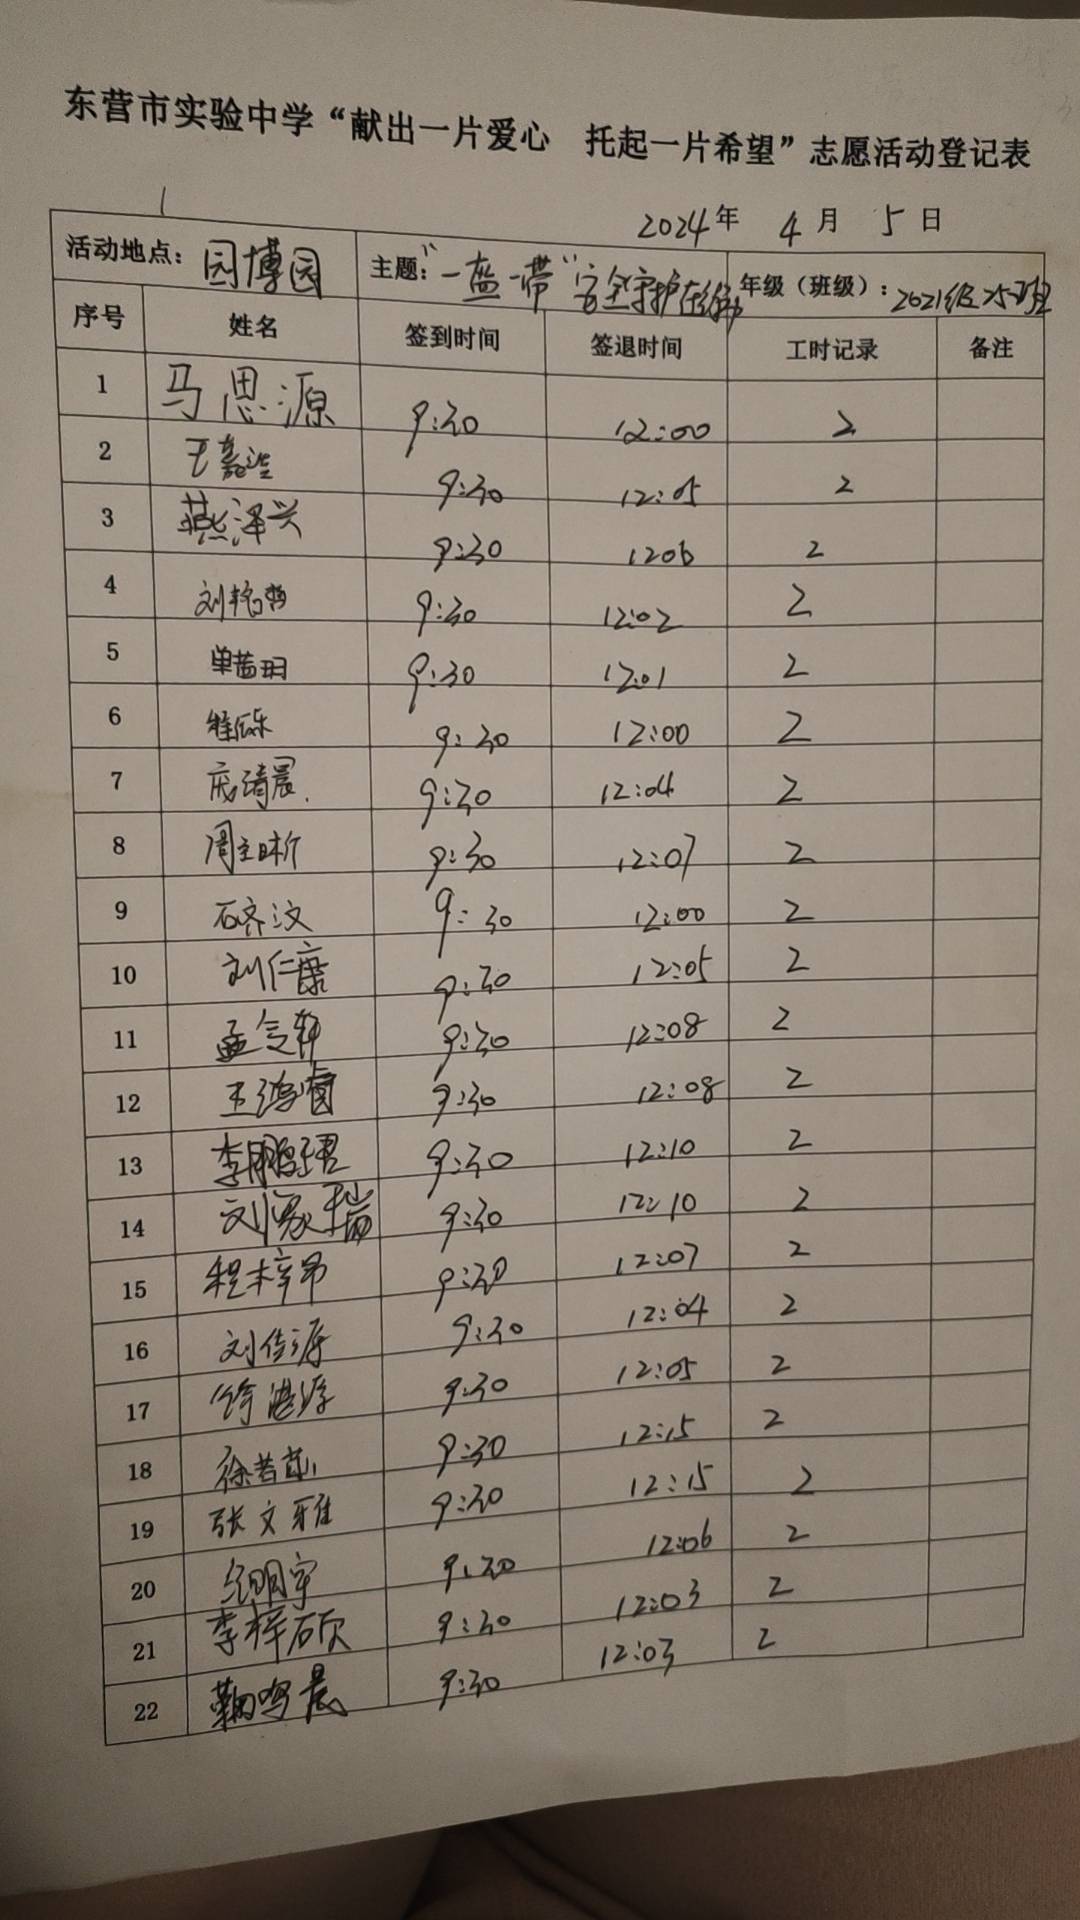 东营市实验中学“献出一片爱心 托起一片希望”志愿活动登记表
2024年 4月 5日
活动地点：园博园 主题：“一盔一带”安全守护在 年级（班级）：2021级25班
序号 姓名 签到时间 签退时间 工时记录 备注
1 马思源 9:30 12:00 2
2 王嘉 9:30 12:05 2
3 燕泽兴 9:30 1206 2
4 刘 9:30 12:02 2
5 单 9:30 12:01 2
6 9:30 12:00 2
7 庞清晨 9:30 12:04 2
8 周 9:30 12:07 2
9 石济汶 9:30 12:00 2
10 刘仁康 9:30 12:05 2
11 孟令轩 9:30 12:08 2
12 王鸿 9:30 12:08 2
13 李鹏珺 9:30 12:10 2
14 刘家瑞 9:30 12:10 2
15 程梓昂 9:30 12:07 2
16 刘佳源 9:30 12:04 2
17 徐湛源 9:30 12:05 2
18 徐 9:30 12:15 2
19 张文雅 9:30 12:15 2
20 纪明宇 9:30 12:06 2
21 李梓硕 9:30 12:03 2
22 鞠鸣晨 9:30 12:03 2